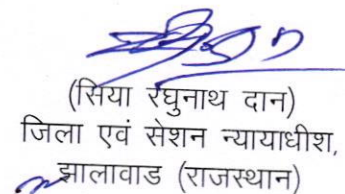 (सिया रघुनाथ दान)
जिला एवं सेशन न्यायाधीश,
झालावाड (राजस्थान)